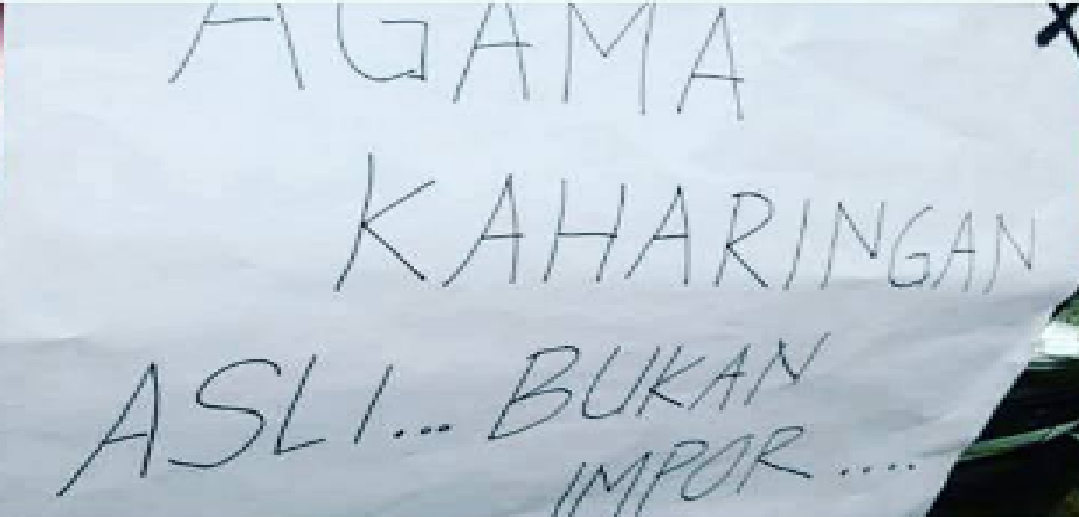 AGAMA
KAHARINGAN
ASLI... BUKAN
IMPOR....